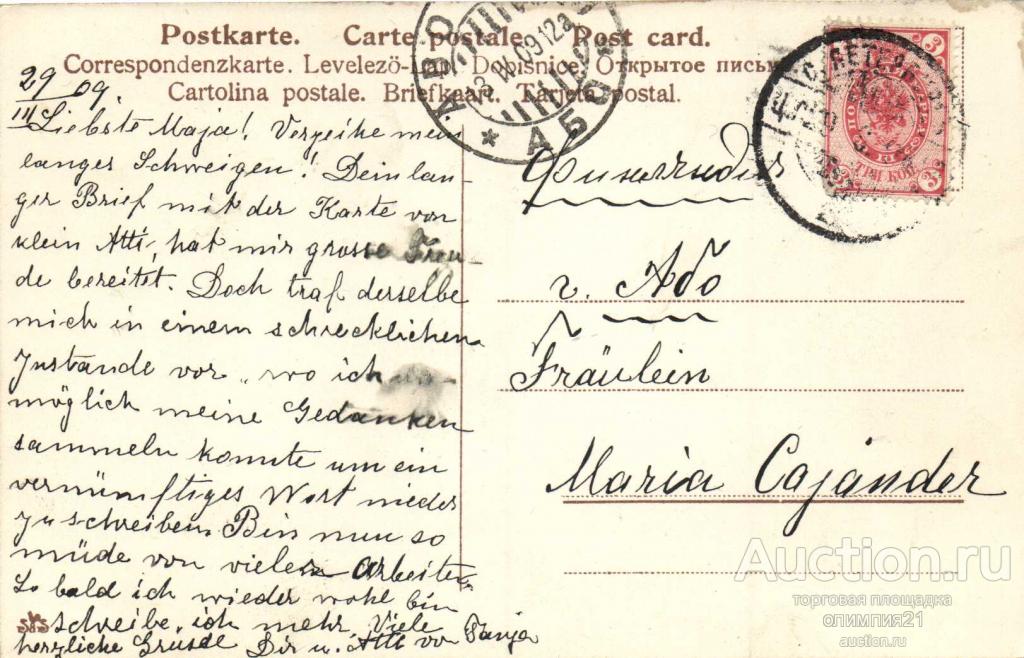 Postkarte. Carte postale. Post card.
Correspondenzkarte. Levelező-Lap. Dopisnice. Открытое письмо
Cartolina postale. Briefkaart. Tarjeta postal.
29 09.
III
Liebste Maja! Verzeihe mein
langes Schweigen! Dein lan-
ger Brief mit der Karte von
klein Atti, hat mir grosse Freu-
de bereitet. Doch traf derselbe
mich in einem schrecklichen
Zustande vor, wo ich un-
möglich meine Gedanken
sammeln konnte um ein
vernünftiges Wort nieder
zu schreiben. Bin nun so
müde von vielen arbeiten
So bald ich wieder wohl bin
schreibe ich mehr. Viele
herzliche Grüsse Dir u. Atti von Tanja
АБО
3 IV 09 12a
* АБО
С. ПЕТЕРБУРГЪ
3 3
3 3
ТРИ КОП
Финляндия
г. Або
Fräulein
Maria Cajander
Auction.ru
торговая площадка
олимпия21
auction.ru